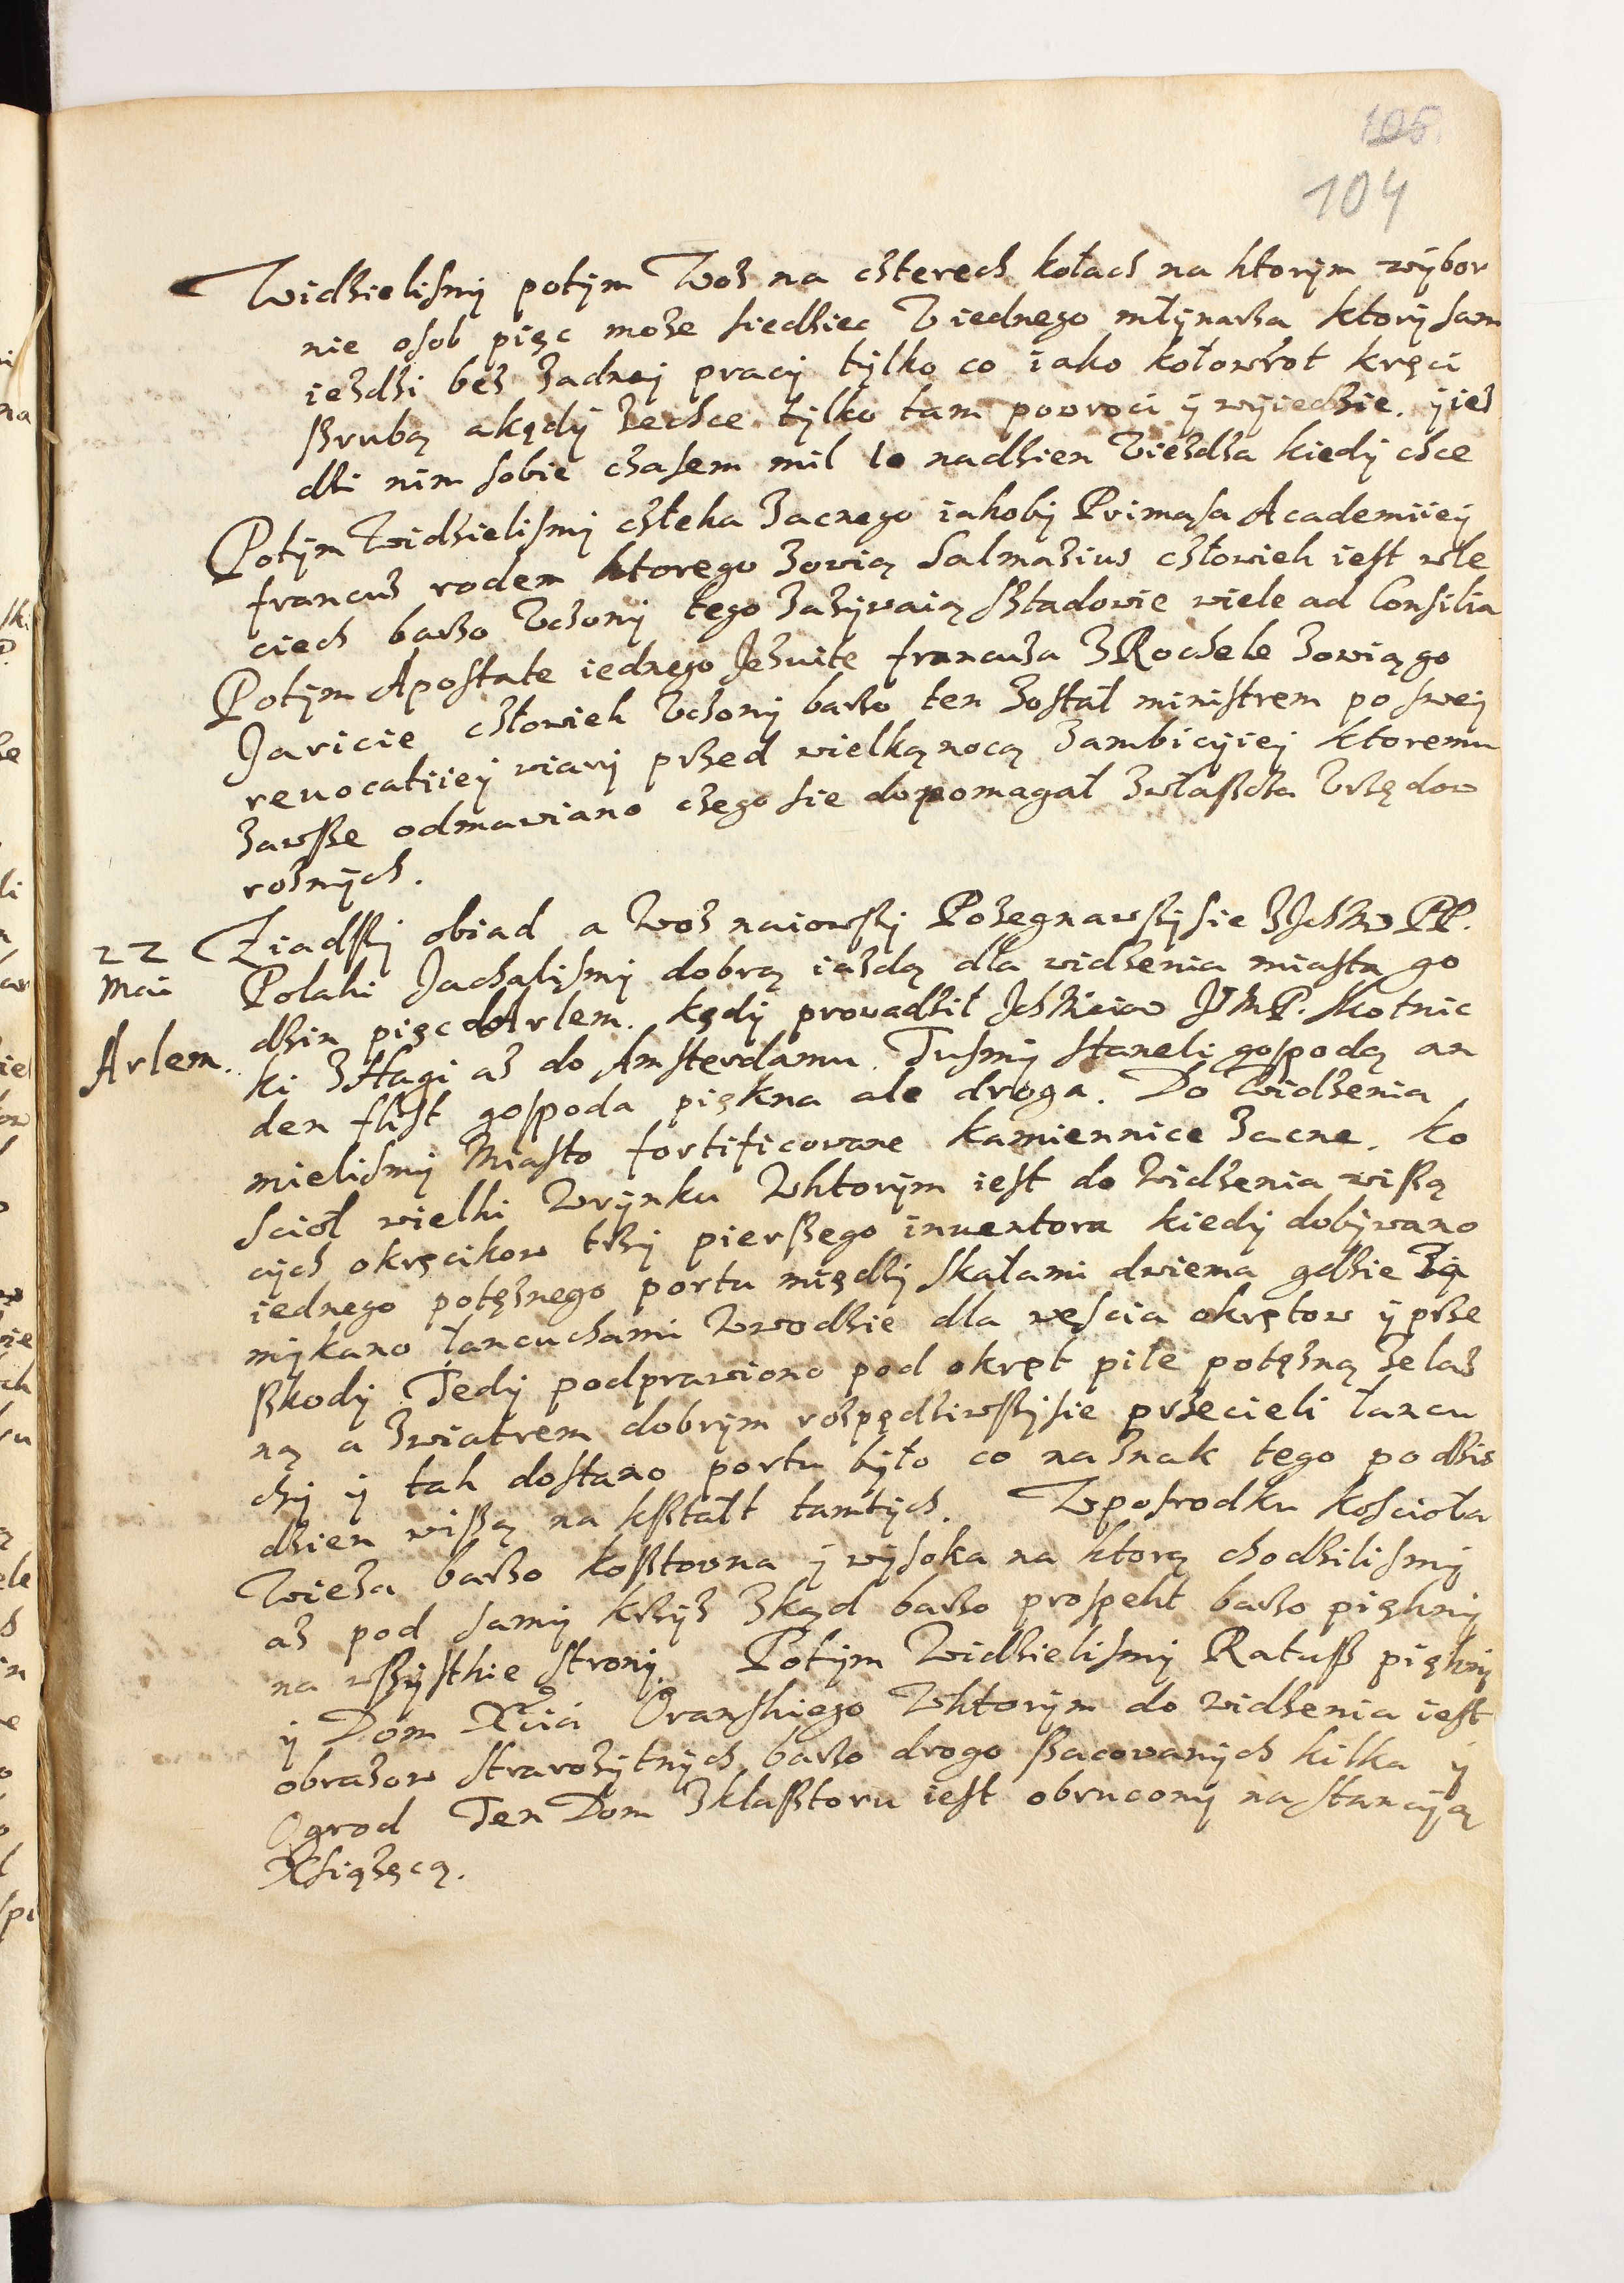 105
104
Widzielismy potym Woz na czterech kołach na ktorym wybor
nie osob pięc moze siedziec V iednego młynarza ktory sam
iezdzi bez zadnej pracy tylko co iako kołowrot kręci
szrubą a kędy zechce tylko tam powroci y wyiedzie. y iez
dzi nim sobie czasem mil 10 nadzien Viezdza kiedy chce
Potym Widzielismy człeka zacnego iakoby Primasa Academiiey
francuz rodem ktorego zowią Salmazius człowiek iest wle
ciech barzo Vczony tego zazywaią Sztadowie wiele ad Consilia
Potym Apostate iednego Jezuite francuza z Rochele zowią go
Jaricie człowiek Vczony barzo ten został ministrem po swey
reuocatiiey wiary przed wielkąnocą zambicyiey ktoremu
zawsze odmawiano czego sie dopomagał zwłaszcza Vrzędow
roznych.
22 Ziadszy obiad a Woz naiowszy Pozegnawszysie z PP.
Mai Polaki Jachalismy dobrą iazdą dla widzenia miasta go
dzin pięc do Arlem. kędy prowadził JMP. Skotnic
Arlem. ki z Hagi az do Amsterdamu. Tusmy staneli gospodą an
den flist gospoda piękna ale droga. Do Widzenia
mielismy Miasto fortificowane kamiennice zacne. ko
scioł wielki Wrynku Wktorym iest do Widzenia wiszą
cych okręcikow trzy pierszego inuentora kiedy dobywano
iednego potęznego portu między skałami dwiema gdzie za
mykano łancuchami Wwodzie dla wescia okrętow y prze
szkody Tedy podprawiono pod okręt piłe potęzną zelaz
ną a zwiatrem dobrym rozpędziwszysie przecieli łancu
chy y tak dostano portu było co naznak tego po dzis
dzien wiszą na kształt tamtych. Wposrodku koscioła
Wieza barzo kosztowna y wysoka na ktorą chodzilismy
az pod samy krzyz zkąd barzo prospekt barzo piękny
na wszystkie strony. Potym Widzielismy Ratusz piękny
y Dom Xcia Oranskiego Wktorym do widzenia iest
obrazow strarozytnych barzo drogo szacowanych kilka y
Ogrod Ten Dom zklasztoru iest obrucony nastancyią
Xsiązęcą.